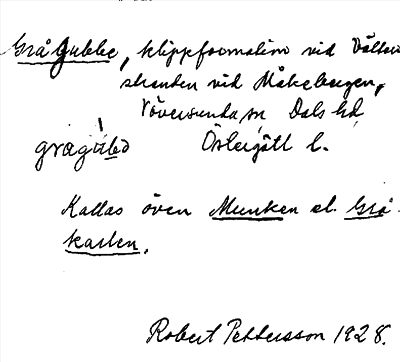 Grå gubbe, klippformation vid Vätter-
stranden vid Måkebergen,
Väversunda sn Dals hd
gragúbə Östergötl l.
Kallas även Munken el. Grå-
karlen.
Robert Pettersson 1928.